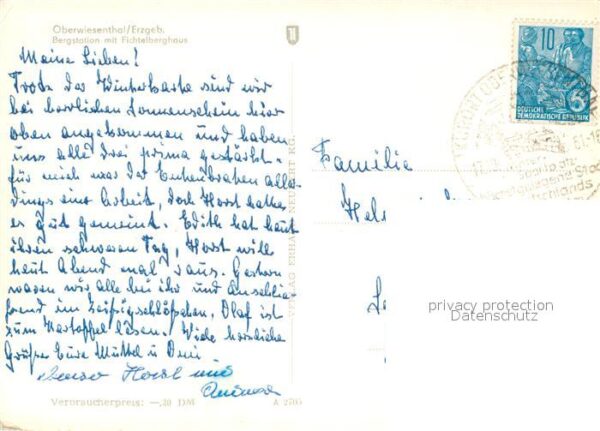 Oberwiesenthal/Erzgeb.
Bergstation mit Fichtelberghaus
Meine Lieben!
Trotz der Winterkarte sind wir
bei herrlichen Sonnenschein hier
oben angekommen und haben
uns alle drei prima gestärkt.
Für mich war der Entenbraten aller-
dings eine Arbeit, doch Horst hatte
es gut gemeint. Edith hat heut
ihren schweren Tag, Horst will
heut Abend mal raus. Gestern
waren wir alle bei ihr und anschlie-
ßend im Zeißigschlößchen. Olaf ist
zum Kartoffel lesen. Viele herzliche
Grüße Eure Muttel u. Omi
ebenso Horst und
Verbraucherpreis: —,20 DM
A 2705
VERLAG ERHARD NEUBERT KG.
10
DEUTSCHE
DEMOKRATISCHE REPUBLIK
17.
61-18
Familie
Hels
privacy protection
Datenschutz